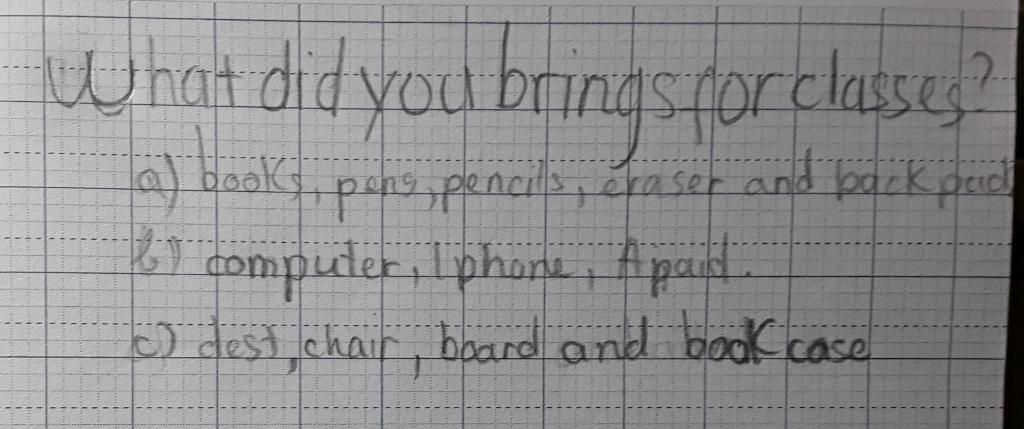 What did you brings for classes?
a) books, pens, pencils, eraser and back pad
b) computer, Iphone, Apaid.
c) dest, chair, board and book case